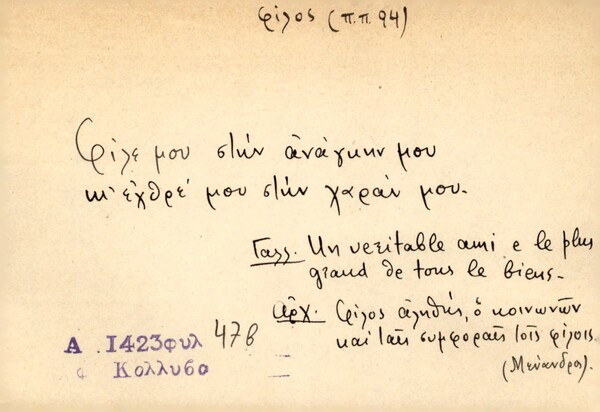 φίλος (π.π. 94)
Φίλε μου στήν ἀνάγκην μου
κι' ἐχθρέ μου στήν χαράν μου.
Γαλλ. Un veritable ami e le plus
grand de tous le biens.
Ἀρχ. Φίλος ἀληθής, ὁ κοινωνῶν
καί ταῖς συμφοραῖς τοῖς φίλοις
(Μένανδρος).
Α 1423φυλ 47β
Κολλυβα